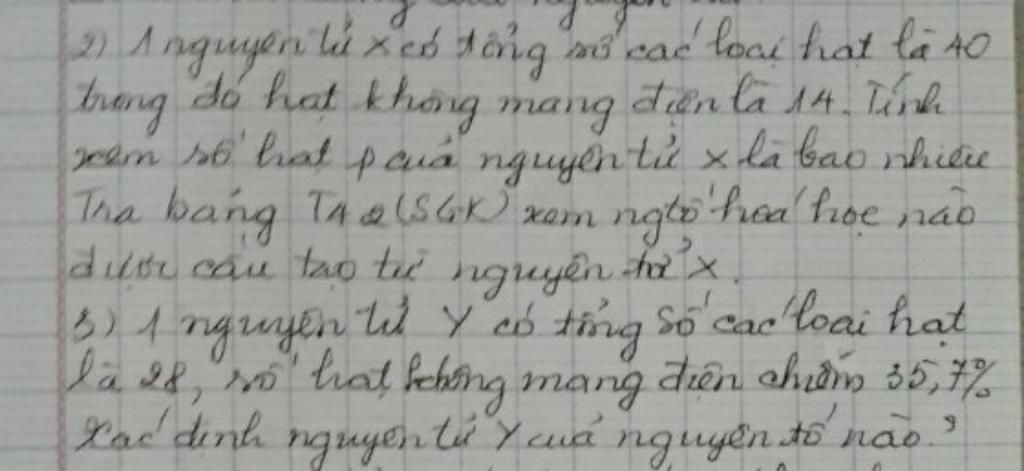 2) 1 nguyên tử x có tổng số các loại hạt là 40
trong đó hạt không mang điện là 14. Tính
xem số hạt p của nguyên tử x là bao nhiêu
Tra bảng T42 (SGK) xem ngtố hóa học nào
được cấu tạo từ nguyên tử x.
3) 1 nguyên tử Y có tổng số các loại hạt
là 28, số hạt không mang điện chiếm 35,7%
Xác định nguyên tử Y của nguyên tố nào?